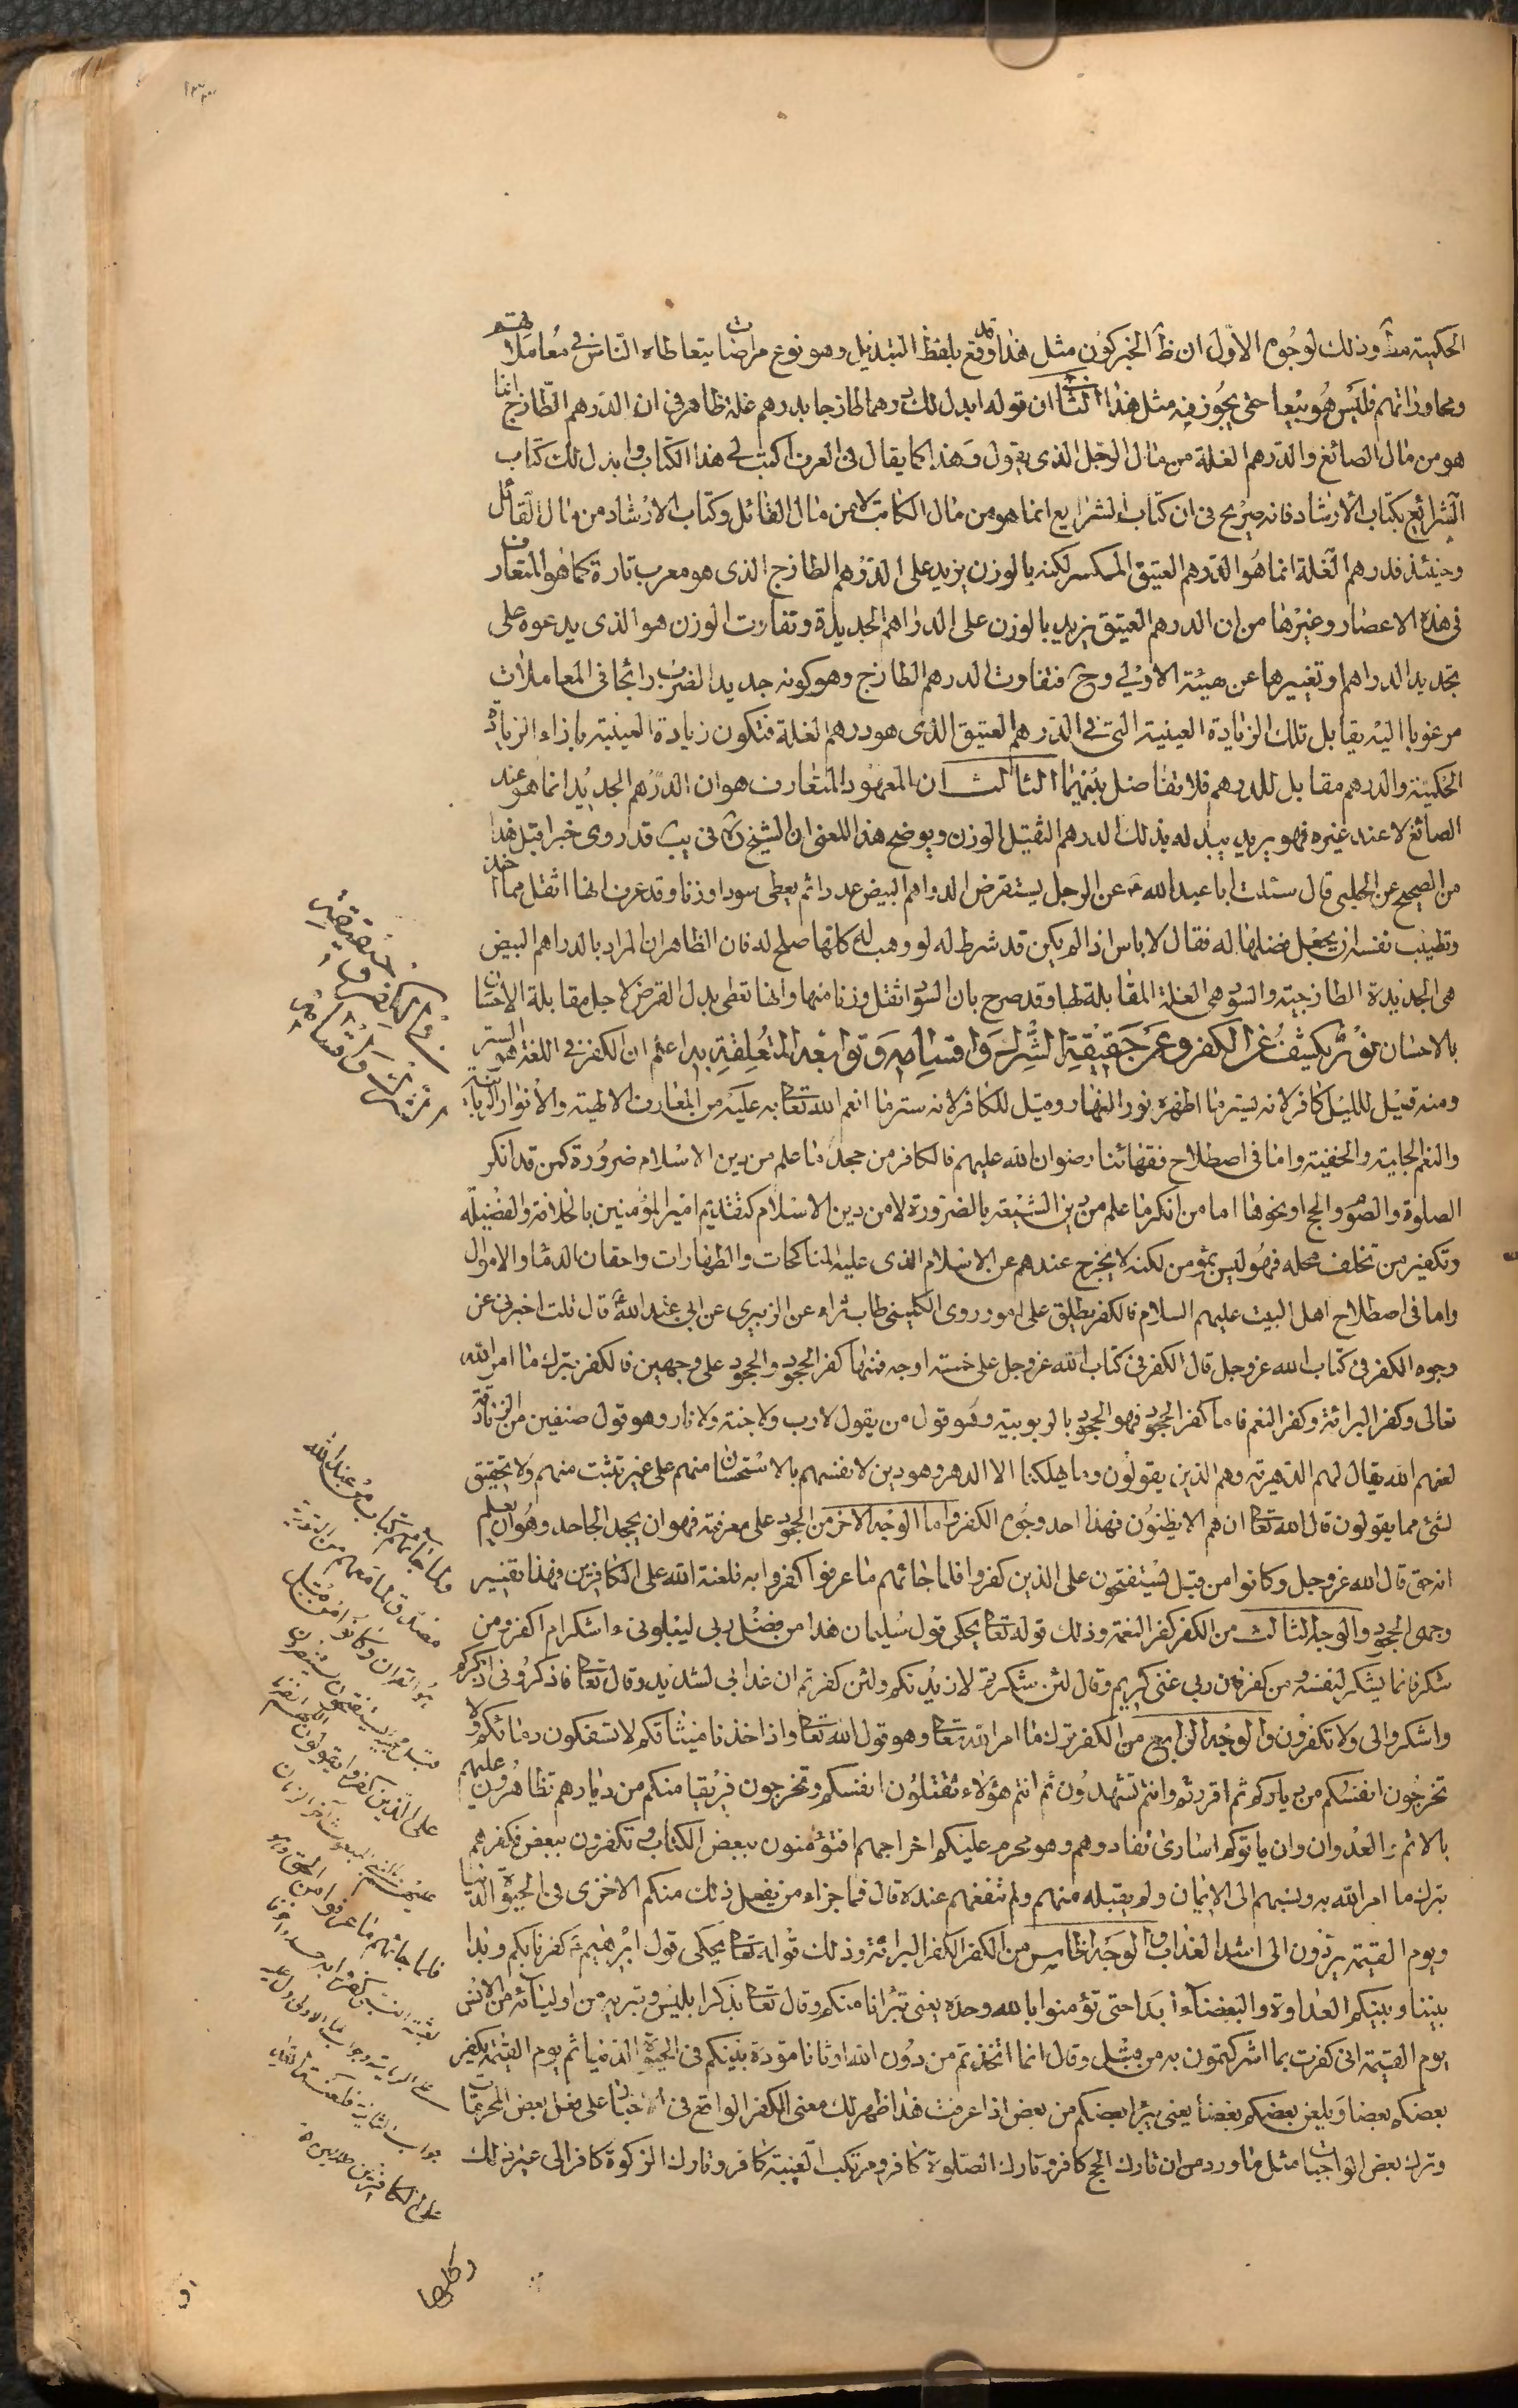 الحكمية مطّ وذلك لوجوه الاوّل ان ظّ الخبر كون مثل هذا قد وقع بلفظ التبديل وهو نوع مراضات يتعاطاه الناس في معاملاتهم
ومحاوراتهم فليس هو بيعا حتى يجوز فيه مثل هذا الثانى ان قوله ابدل لك درهما طازجا بدرهم غلة ظاهر في ان الدرهم الطازج انما
هو من مال الصائغ والدرهم الغلة من مال الرجل الذى يقول وهذا كما يقال في العرف اكتب لى هذا الكتاب وابدل لك كتاب
الشرائع بكتاب الارشاد فانه صريح في ان كتاب الشرايع انما هو من مال الكاتب لا من مال القائل وكتاب الارشاد من مال القائل
وحينئذ فدرهم الغلة انما هو الدرهم العتيق المكسر لكنه بالوزن يزيد على الدرهم الطازج الذى هو معرب تازه كما هو المتعارف
في هذه الاعصار وغيرها من ان الدرهم العتيق يزيد بالوزن على الدراهم الجديدة وتفاوت الوزن هو الذى يدعوه على
تجديد الدراهم وتغييرها عن هيئته الاولى وح فتفاوت الدرهم الطازج وهو كونه جديد الضرب رائجا في المعاملات
مرغوبا اليه يقابل تلك الزيادة العينية التى في الدرهم العتيق الذى هو درهم الغلة فتكون زيادة العينية بازاء الزيادة
الحكمية والدرهم مقابل للدرهم فلا تفاضل بينهما الثالث ان المعهود المتعارف هو ان الدرهم الجديد انما هو عند
الصائغ لا عند غيره فهو يريد يبدله بذلك الدرهم الثقيل الوزن ويوضح هذا المعنى ان الشيخ ره في يب قد روى خبرا قبل هذا
من الصحيح عن الحلبى قال سئلت ابا عبد الله ع عن الرجل يستقرض الدراهم البيض عددا ثم يعطى سودا وزنا وقد عرف انها اثقل مما اخذ
وتطيب نفسه ان يجعل فضلها له فقال لا باس اذا لم يكن قد شرط له لو وهب له كلها صلح له فان الظاهر ان المراد بالدراهم البيض
هى الجديدة الطازجية والسود هى الغلة المقابلة لها وقد صرح بان السود اثقل وزنا منها وانها تعطى بدل القرض لاجل مقابلة الاحسان
بالاحسان نور يكشف عن الكفر وعن حقيقة الشرك واقسامه وتوابعه المتعلقة به اعلم ان الكفر في اللغة هو الستر
ومنه قيل لليل كافر لانه يستر ما اظهره نور النهار وقيل للكافر لانه ستر ما انعم الله تعالى به عليه من المعارف الالهية والانوار الربانية
والنعم الجلية والخفية واما في اصطلاح فقهائنا رضوان الله عليهم فالكافر من جحد ما علم من دين الاسلام ضرورة كمن قد انكر
الصلوة والصوم والحج او نحوها اما من انكر ما علم من دين الشيعة بالضرورة لا من دين الاسلام كتقديم امير المؤمنين بالخلافة والفضيلة
وتكفير من تخلف محله فهو ليس بمؤمن لكنه لا يخرج عندهم عن الاسلام الذى عليه المناكحات والطهارات واحقان الدماء والاموال
واما في اصطلاح اهل البيت عليهم السلام فالكفر يطلق على امور روى الكلينى طاب ثراه عن الزبيرى عن ابى عبد الله ع قال قلت اخبرنى عن
وجوه الكفر في كتاب الله عز وجل قال الكفر في كتاب الله عز وجل على خمسة اوجه فمنها كفر الجحود والجحود على وجهين فالكفر بترك ما امر الله
تعالى وكفر البرائة وكفر النعم فاما كفر الجحود فهو الجحود بالربوبية وهو قول من يقول لا رب ولا جنة ولا نار وهو قول صنفين من الزنادقة
لعنهم الله يقال لهم الدهرية وهم الذين يقولون وما يهلكنا الا الدهر وهو دين لانفسهم بالاستحسان منهم على غير تثبت منهم ولا تحقيق
لشئ مما يقولون قال الله تعالى ان هم الا يظنون فهذا احد وجوه الكفر واما الوجه الاخر من الجحود على معرفة فهو ان يجحد الجاحد وهو ان يعلم
انه حق قال الله عز وجل وكانوا من قبل يستفتحون على الذين كفروا فلما جائهم ما عرفوا كفروا به فلعنة الله على الكافرين فهذا تفسير
وجهى الجحود والوجه الثالث من الكفر كفر النعمة وذلك قوله تعالى يحكى قول سليمان هذا من فضل ربى ليبلونى ءاشكر ام اكفر ومن
شكر فانما يشكر لنفسه ومن كفر فان ربى غنى كريم وقال لئن شكرتم لازيدنكم ولئن كفرتم ان عذابى لشديد وقال تعالى فاذكرونى اذكركم
واشكروا لى ولا تكفرون والوجه الرابع من الكفر ترك ما امر الله تعالى وهو قول الله تعالى واذ اخذنا ميثاقكم لا تسفكون دمائكم ولا
تخرجون انفسكم من دياركم ثم اقررتم وانتم تشهدون ثم انتم هؤلاء تقتلون انفسكم وتخرجون فريقا منكم من ديارهم تظاهرون عليهم
بالاثم والعدوان وان ياتوكم اسارى تفادوهم وهو محرم عليكم اخراجهم افتؤمنون ببعض الكتاب وتكفرون ببعض فكفرهم
بترك ما امر الله به ونسبهم الى الايمان ولم يقبله منهم ولم تنفعهم عنده قال فما جزاء من يفعل ذلك منكم الا خزى في الحيوة الدنيا
ويوم القيمة يردون الى اشد العذاب والوجه الخامس من الكفر الكفر البرائة وذلك قوله تعالى يحكى قول ابرهيم ع كفرنا بكم وبدا
بيننا وبينكم العداوة والبغضاء ابدا حتى تؤمنوا بالله وحده يعنى تبرانا منكم وقال تعالى يذكر ابليس وتبريه من اوليائه من الانس
يوم القيمة انى كفرت بما اشركتمون به من قبل وقال انما اتخذتم من دون الله اوثانا مودة بينكم في الحيوة الدنيا ثم يوم القيمة يكفر
بعضكم بعضا ويلعن بعضكم بعضا يعنى يبرا بعضكم من بعض اذا عرفت هذا ظهر لك معنى الكفر الواقع في الاخبار على فعل بعض المحرمات
وترك بعض الواجبات مثل ما ورد من ان تارك الحج كافر وتارك الصلوة كافر ومرتكب الغيبة كافر وتارك الزكوة كافر الى غير ذلك
ولما جائهم كتاب من عند الله
مصدق لما معهم من التورية
هو القران وكانوا من قبل
على الذين كفروا يقولون اللهم انصرنا
عليهم بالنبى المبعوث آخر الزمان
فلما جائهم ما عرفوا من الحق وهو
على الكافرين